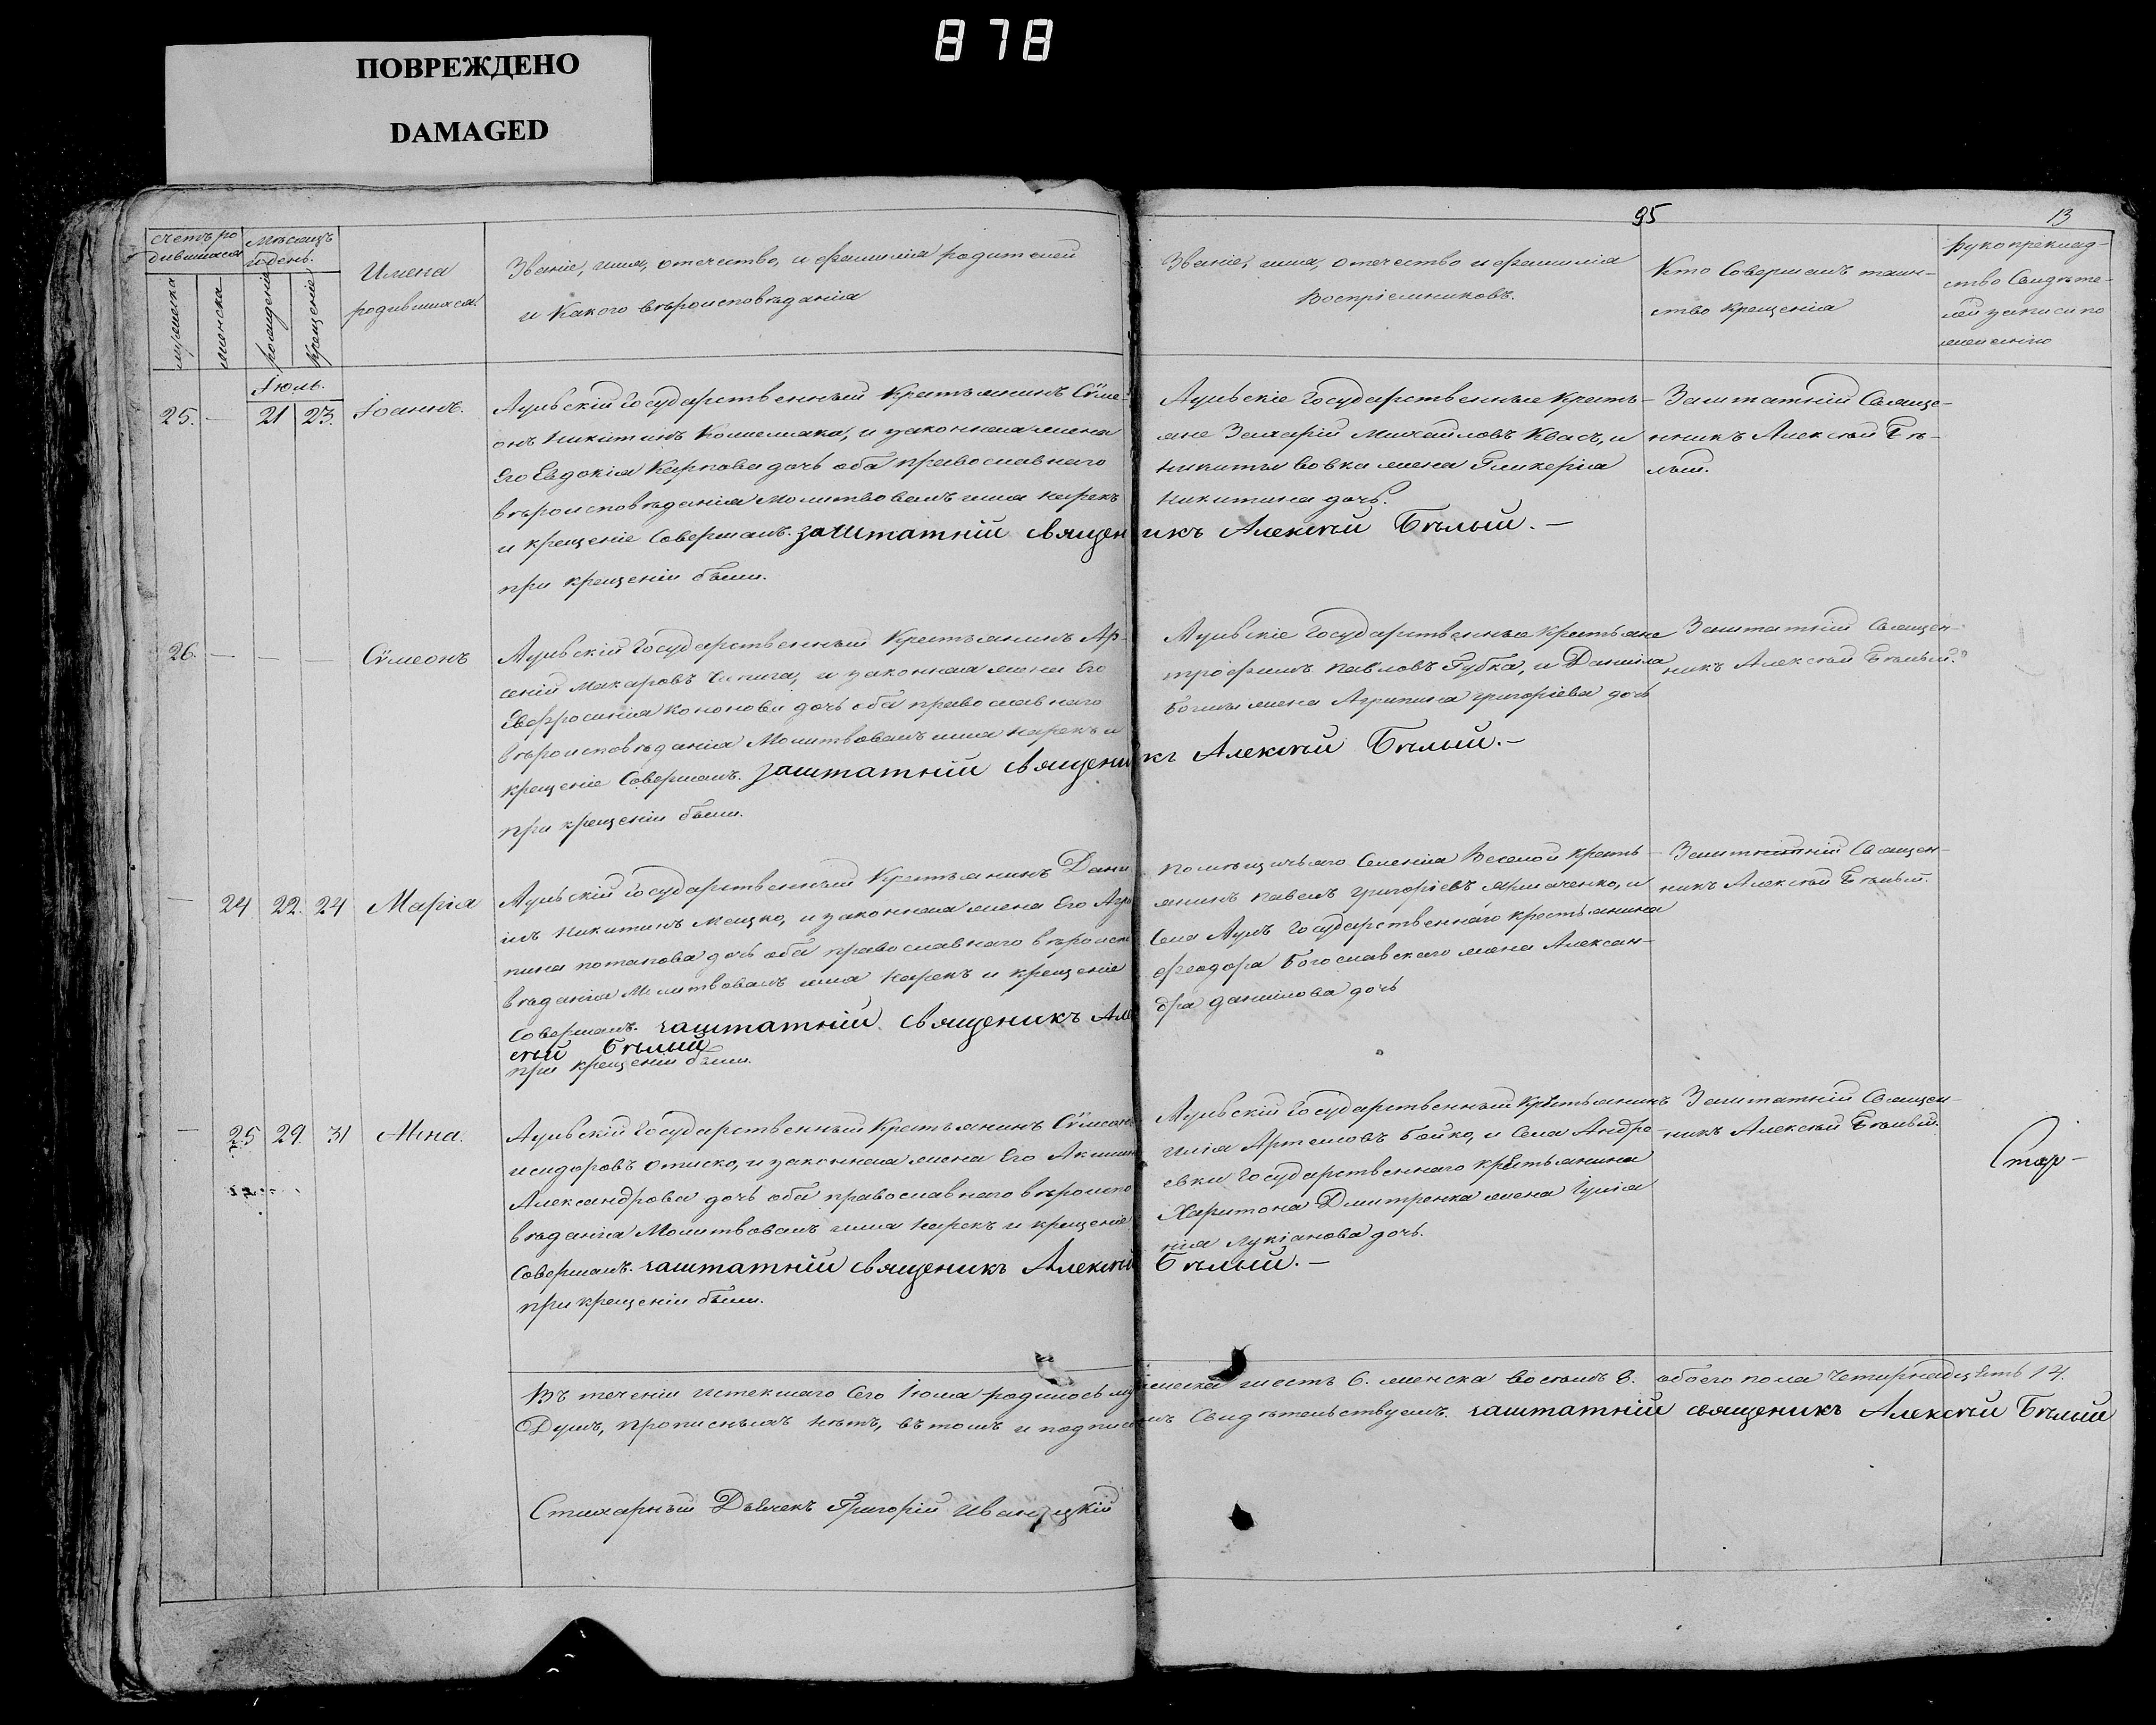 878
ПОВРЕЖДЕНО
DAMAGED
95
13
Счетъ ро
дившихся
Мѣсяцъ
и день.
мужеска
женска
рожденіе
Крещеніе
Имена
родившихся
Званіе, имя, отечество, и фамилія родителей
и Какого вѣроисповѣданія
Званіе, имя, отечество и фамилія
Воспріемниковъ.
Кто Совершалъ таин-
ство Крещенія
Рукоприклад-
ство Свидѣте-
лей записи по
желанію
Іюль.
25. — 21 23. Іоаннъ.
Аульскій Государственный Крестьянинъ Сѵме-
онъ Никитинъ и законная жена
Его Евдокія Карпова дочь оба православнаго
вѣроисповѣданія Молитвовалъ имя нарекъ
и крещеніе Совершалъ. заштатній священикъ Алексѣй Бѣлый. —
при крещеніи были.
Аульскіе Государственные Кресть-
яне Захарій Михайловъ Квасъ, и
Никиты Вовка жена Гликерія
Никитина дочь.
Заштатній Свяще-
нникъ Алексѣй Бѣ-
лый.
26. — — — Сѵмеонъ
Аульскій Государственный Крестьянинъ Ар-
сеній Макаровъ и законная жена Его
Евфросинія Кононова дочь оба православнаго
вѣроисповѣданія Молитвовалъ имя нарекъ и
крещеніе Совершалъ. заштатній священикъ Алексѣй Бѣлый. —
при крещеніи были.
Аульскіе Государственные Крестьяне
Трофимъ Павловъ Губка, и Даніила
жена Агрипина Григоріева дочь
Заштатній Священ-
никъ Алексѣй Бѣлый.
— 24 22. 24 Марія
Аульскій Государственный Крестьянинъ Дани
илъ Никитинъ Мацко, и законная жена Его Агри
пина Потапова дочь оба православнаго вѣроиспо
вѣданія Молитвовалъ имя нарекъ и крещеніе
Совершалъ. заштатній священикъ Але
сѣй Бѣлый
при крещеніи были.
Помѣщичьяго Селенія Веселой Кресть-
янинъ Павелъ Григоріевъ и
Села Аулъ Государственнаго крестьянина
Феодора Богославскаго жена Алексан-
дра Даніилова дочь
Заштатній Священ-
никъ Алексѣй Бѣлый.
— 25 29. 31 Анна.
Аульскій Государственный Крестьянинъ Сѵмеонъ
Исидоровъ и законная жена Его Акилина
Александрова дочь оба православнаго вѣроиспо
вѣданія Молитвовалъ имя нарекъ и крещеніе
Совершалъ. заштатній священикъ Алексѣй Бѣлый. —
при крещеніи были.
Аульскій Государственный Крестьянинъ
Илія Артемовъ Бойко, и Села Андре-
евки Государственнаго крестьянина
Харитона Дмитренка жена Іуліа
нія Лукіанова дочь.
Заштатній Священ-
никъ Алексѣй Бѣлый.
Въ теченіи истекшаго Сего Іюля родилось мужеска шесть 6. женска восемъ 8. обоего пола четирнадцять 14.
Душъ, прописныхъ нѣтъ, въ томъ и подписомъ Свидѣтельствуемъ. заштатній священикъ Алексѣй Бѣлый
Стихарный Дьячекъ Григорій Иваницкій